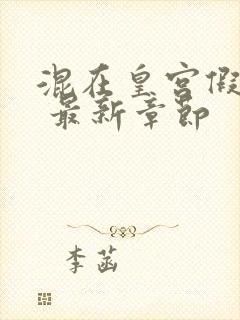 混在皇宫假
最新章节
李菡